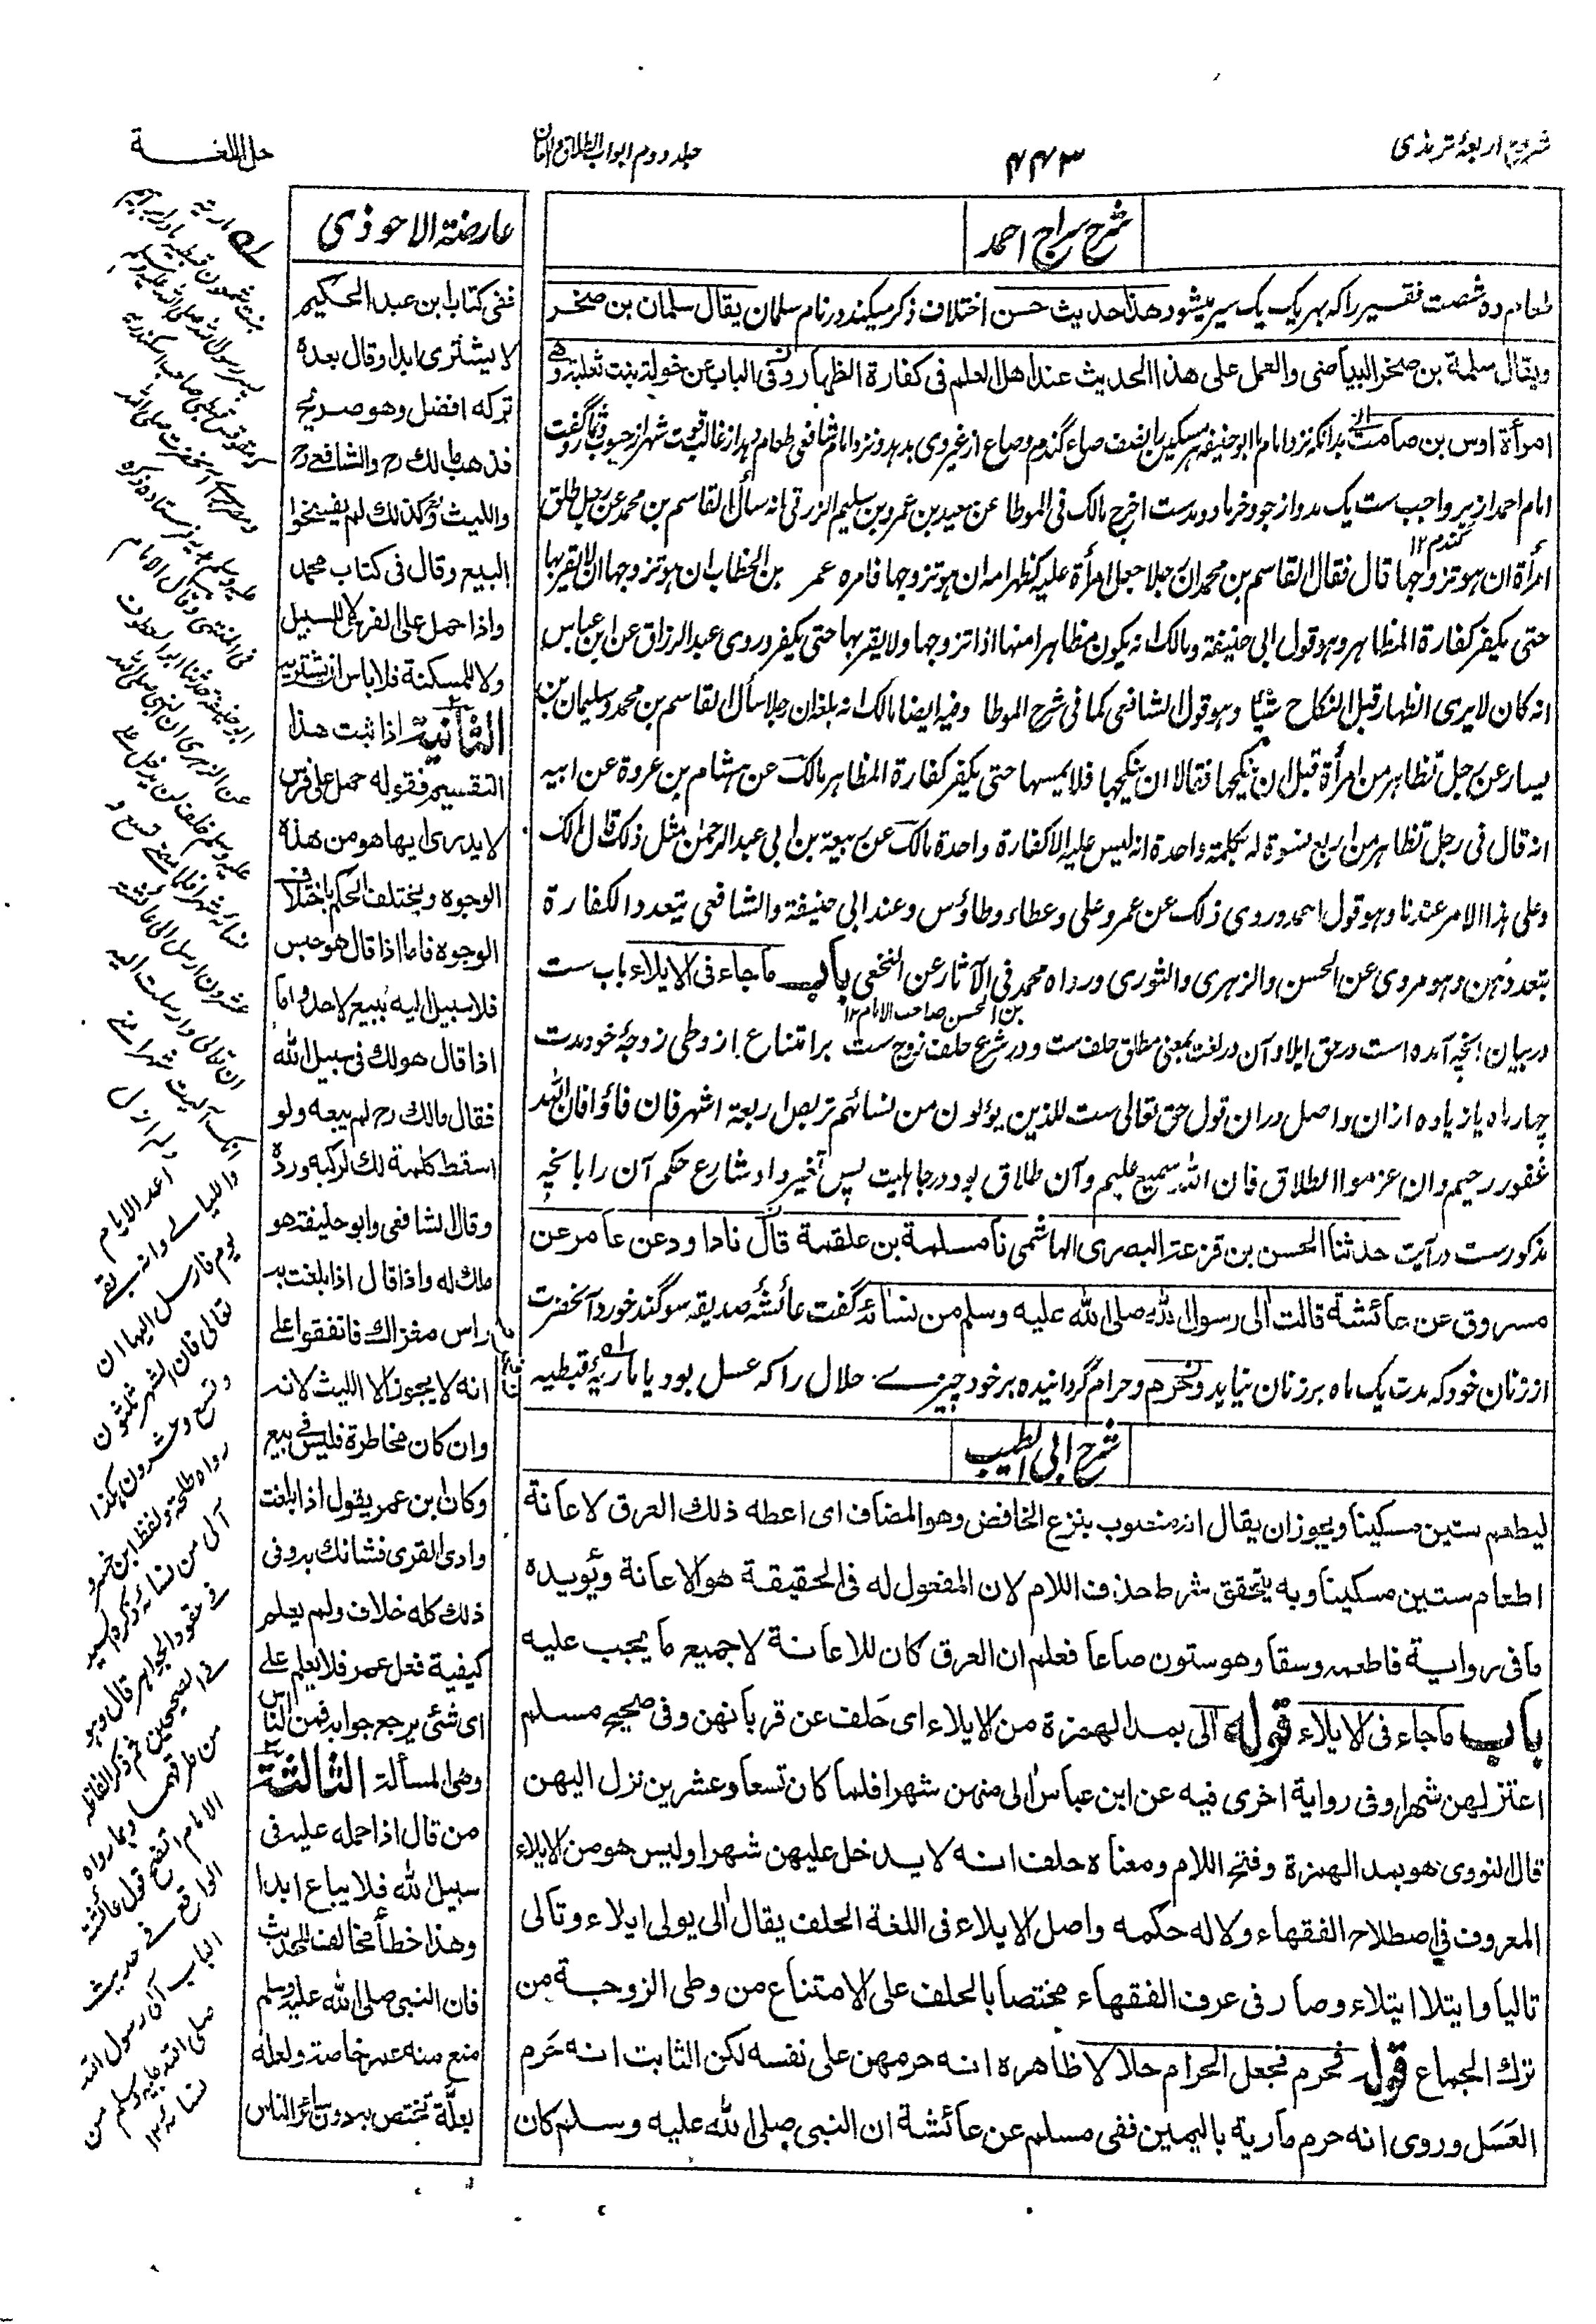 شروح اربعهٔ ترمذی
۴۴۳
جلد دوم ابواب الطلاق واللعان
حل اللغـــة
شرح سراج احمد
طعام ده شصت فقیر را که بهر یک یک سیر میشود هذا حدیث حسن اختلاف ذکر میکند در نام سلمان یقال سلمان بن صخر
ویقال سلمة بن صخر البیاضی والعمل علی هذا الحدیث عند اهل العلم فی کفارة الظهار وفی الباب عن خولة بنت ثعلبة وهی
امرأة اوس بن صامت بدانکه نزد امام ابو حنیفه هر مسکین را نصف صاع گندم وصاع از غیر وی بدهد ونزد امام شافعی طعام بدهد از غالب قوت شهر از حبوب
امام احمد از بر واجب ست یک مد واز جو وخرما دو مدست اخرج مالک فی الموطا عن سعید بن عمرو بن سلیم الزرقی انه سأل القاسم بن محمد عن رجل طلق
گندم ۱۲
امرأة ان هو تزوجها قال فقال القاسم بن محمد ان رجلا جعل امرأة علیه کظهر امه ان هو تزوجها فامره عمر بن الخطاب ان هو تزوجها ان لا یقربها
حتی یکفر کفارة المظاهر وهو قول ابی حنیفة ومالک انه یکون مظاهرا منها اذا تزوجها ولا یقربها حتی یکفر وروی عبد الرزاق عن ابن عباس
انه کان لا یری الظهار قبل النکاح شیئا وهو قول الشافعی کما فی شرح الموطا وفیه ایضا مالک انه بلغه ان رجلا سأل القاسم بن محمد وسلیمان بن
یسار عن رجل تظاهر من امرأة قبل ان ینکحها فقالا ان ینکحها فلا یمسها حتی یکفر کفارة المظاهر مالک عن هشام بن عروة عن ابیه
انه قال فی رجل تظاهر من اربع نسوة له بکلمة واحدة انه لیس علیه الا کفارة واحدة مالک عن ربیعة بن ابی عبد الرحمن مثل ذلک قال مالک
وعلی هذا الامر عندنا وهو قول احمد وروی ذلک عن عمر وعلی وعطاء وطاؤس وعند ابی حنیفة والشافعی یتعدد الکفارة
بتعددهن وهو مروی عن الحسن والزهری والثوری ورواه محمد فی الآثار عن النخعی باب ما جاء فی الایلاء باب ست
بن الحسن صاحب الامام ۱۲
در بیان آنچه آمده است در حق ایلا وآن در لغت بمعنی مطلق حلف ست ودر شرع حلف زوج ست بر امتناع از وطی زوجهٔ خود مدت
چهار ماه یا زیاده ازان واصل دران قول حق تعالی ست للذین یؤلون من نسائهم تربص اربعة اشهر فان فاؤا فان الله
غفور رحیم وان عزموا الطلاق فان الله سمیع علیم وآن طلاق بود در جاهلیت پس تغیر داد شارع حکم آن را بآنچه
مذکورست در آیت حدثنا الحسن بن قزعة البصری الهاشمی نا مسلمة بن علقمة قال نا داود عن عامر عن
مسروق عن عائشة قالت آلی رسول الله صلی الله علیه وسلم من نسائه گفت عائشهٔ صدیقه سوگند خورد آنحضرت
از زنان خود که مدت یک ماه بر زنان نیاید وحرم وحرام گردانیده بر خود چیزے حلال را که عسل بود یا ماریهٔ قبطیه
شرح ابی الطیب
لیطعم ستین مسکینا ویجوز ان یقال انه منصوب بنزع الخافض وهو المضاف ای اعطه ذلك العرق لاعانة
اطعام ستین مسکینا وبه یتحقق شرط حذف اللام لان المفعول له فی الحقیقة هو الاعانة ویؤیده
ما فی روایة فاطعمه وسقا وهو ستون صاعا فعلم ان العرق کان للاعانة لا جمیع ما یجب علیه
باب ما جاء فی الایلاء قوله آلی بمد الهمزة من الایلاء ای حلف عن قربانهن وفی صحیح مسلم
اعتزلهن شهرا وفی روایة اخری فیه عن ابن عباس آلی منهن شهرا فلما کان تسعا وعشرین نزل الیهن
قال النووی هو بمد الهمزة وفتح اللام ومعناه حلف انه لا یدخل علیهن شهرا ولیس هو من الایلاء
المعروف فی اصطلاح الفقهاء ولا له حکمه واصل الایلاء فی اللغة الحلف یقال آلی یولی ایلاء وتألی
تالیا وایتلا ایتلاء وصار فی عرف الفقهاء مختصا بالحلف علی الامتناع من وطی الزوجة من
ترك الجماع قوله فحرم فجعل الحرام حلالا ظاهره انه حرمهن علی نفسه لکن الثابت انه حرم
العسل وروی انه حرم ماریة بالیمین ففی مسلم عن عائشة ان النبی صلی الله علیه وسلم کان
عارضة الاحوذی
ففی کتاب ابن عبد الحکیم
لا یشتری ابدا وقال بعده
ترکه افضل وهو صریح
فذهب مالك رح والشافعی رح
واللیث وکذلك لم یفسخوا
البیع وقال فی کتاب محمد
واذا حمل علی الفرس لا للسبیل
ولا للمسکنة فلا باس ان یشتریه
الثانیة اذا ثبت هذا
التقسیم فقوله حمل علی فرس
لا یدری ایها هو من هذه
الوجوه ویختلف الحکم باختلاف
الوجوه فاما اذا قال هو حبس
فلا سبیل الیه ببیع لاحد واما
اذا قال هو لك فی سبیل الله
فقال مالك رح لم یبعه ولو
اسقط کلمة لك لرکبه ورده
وقال الشافعی وابو حنیفة هو
ملك له واذا قال اذا بلغت به
راس مغزاك فاتفقوا علی
انه لا یجوز الا اللیث لانه
وان کان مخاطرة فلیس فی بیع
وکان ابن عمر یقول اذا بلغت
وادی القری فشانك به وفی
ذلك کله خلاف ولم یعلم
کیفیة فعل عمر فلا یعلم علی
ای شئ یرجع جوابه فمن الناس
وهی المسألة الثالثة
من قال اذا حمله علیه فی
سبیل الله فلا یباع ابدا
وهذا خطأ مخالف للحدیث
فان النبی صلی الله علیه وسلم
منع منه عمر خاصة ولعله
لعلة تختص به دون سائر الناس
۵۱ ماریه
بنت شمعون قبطیه
علیه وسلم خلف ان لا یدخل علی
عشرون ارسل الی عائشة
اعد الایام
واللیالی وانه بقے
یوم فارسل الیها ان
تعالی فان الشهر ثلثون
وتسع وعشرون هکذا
رواه طلحة ولفظ ابن خسرو
آلی من نسائه وذکره السید
فی عقود الجواهر قال وهو
فی الصحیحین ثم ذکر الفاظه
من طرقهما وبما رواه
الامام اتضح قول عائشة
الواقع فی حدیث
الباب آلی رسول الله
صلی الله علیه وسلم من
نسائه ۱۲